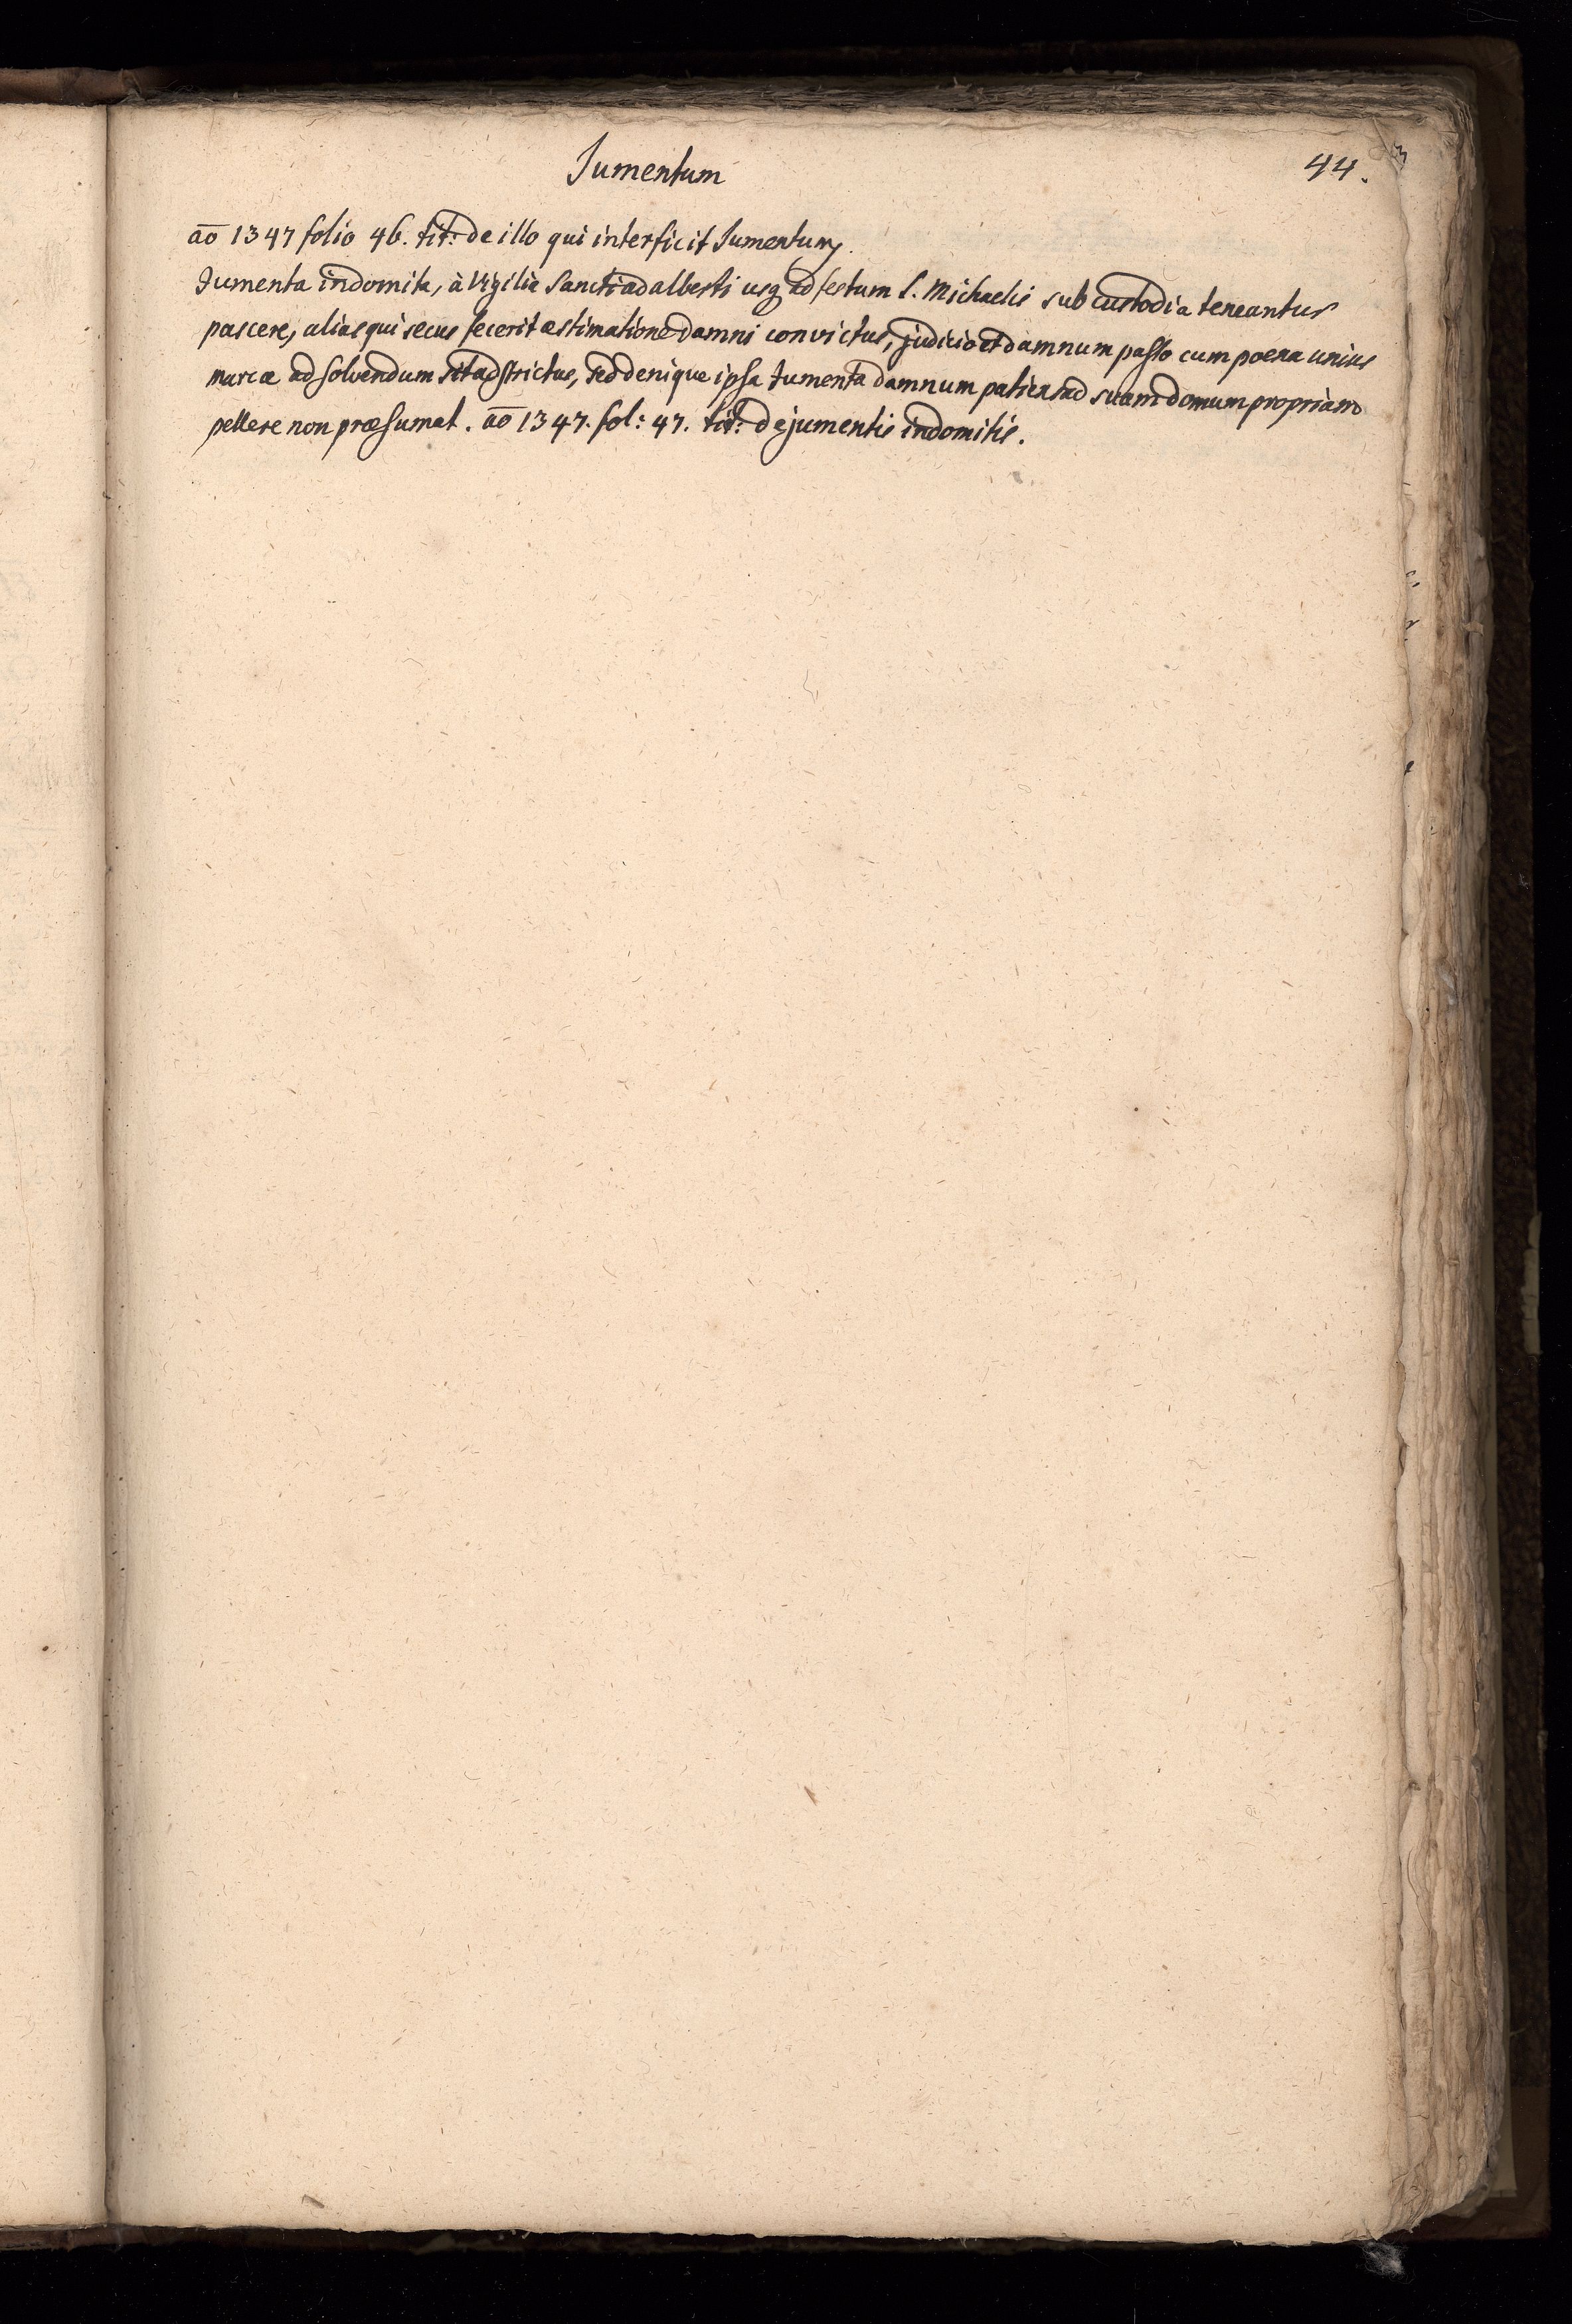 Jumentum
44.
aō 1347 folio 46. tit: de illo qui interficit Jumentum.
Jumenta indomita, à Vigilia Sancti adalberti usq ad festum S. Michaelis sub custodia teneantur
pascere, alias qui secus fecerit æstimatione damni convictus, judicio et damnum passo cum poena unius
marcæ ad solvendum sit adstrictus, sed denique ipsa Jumenta damnum patiens ad suam domum propriam
pellere non præsumat. aō 1347. fol: 47. tit: de jumentis indomitis.